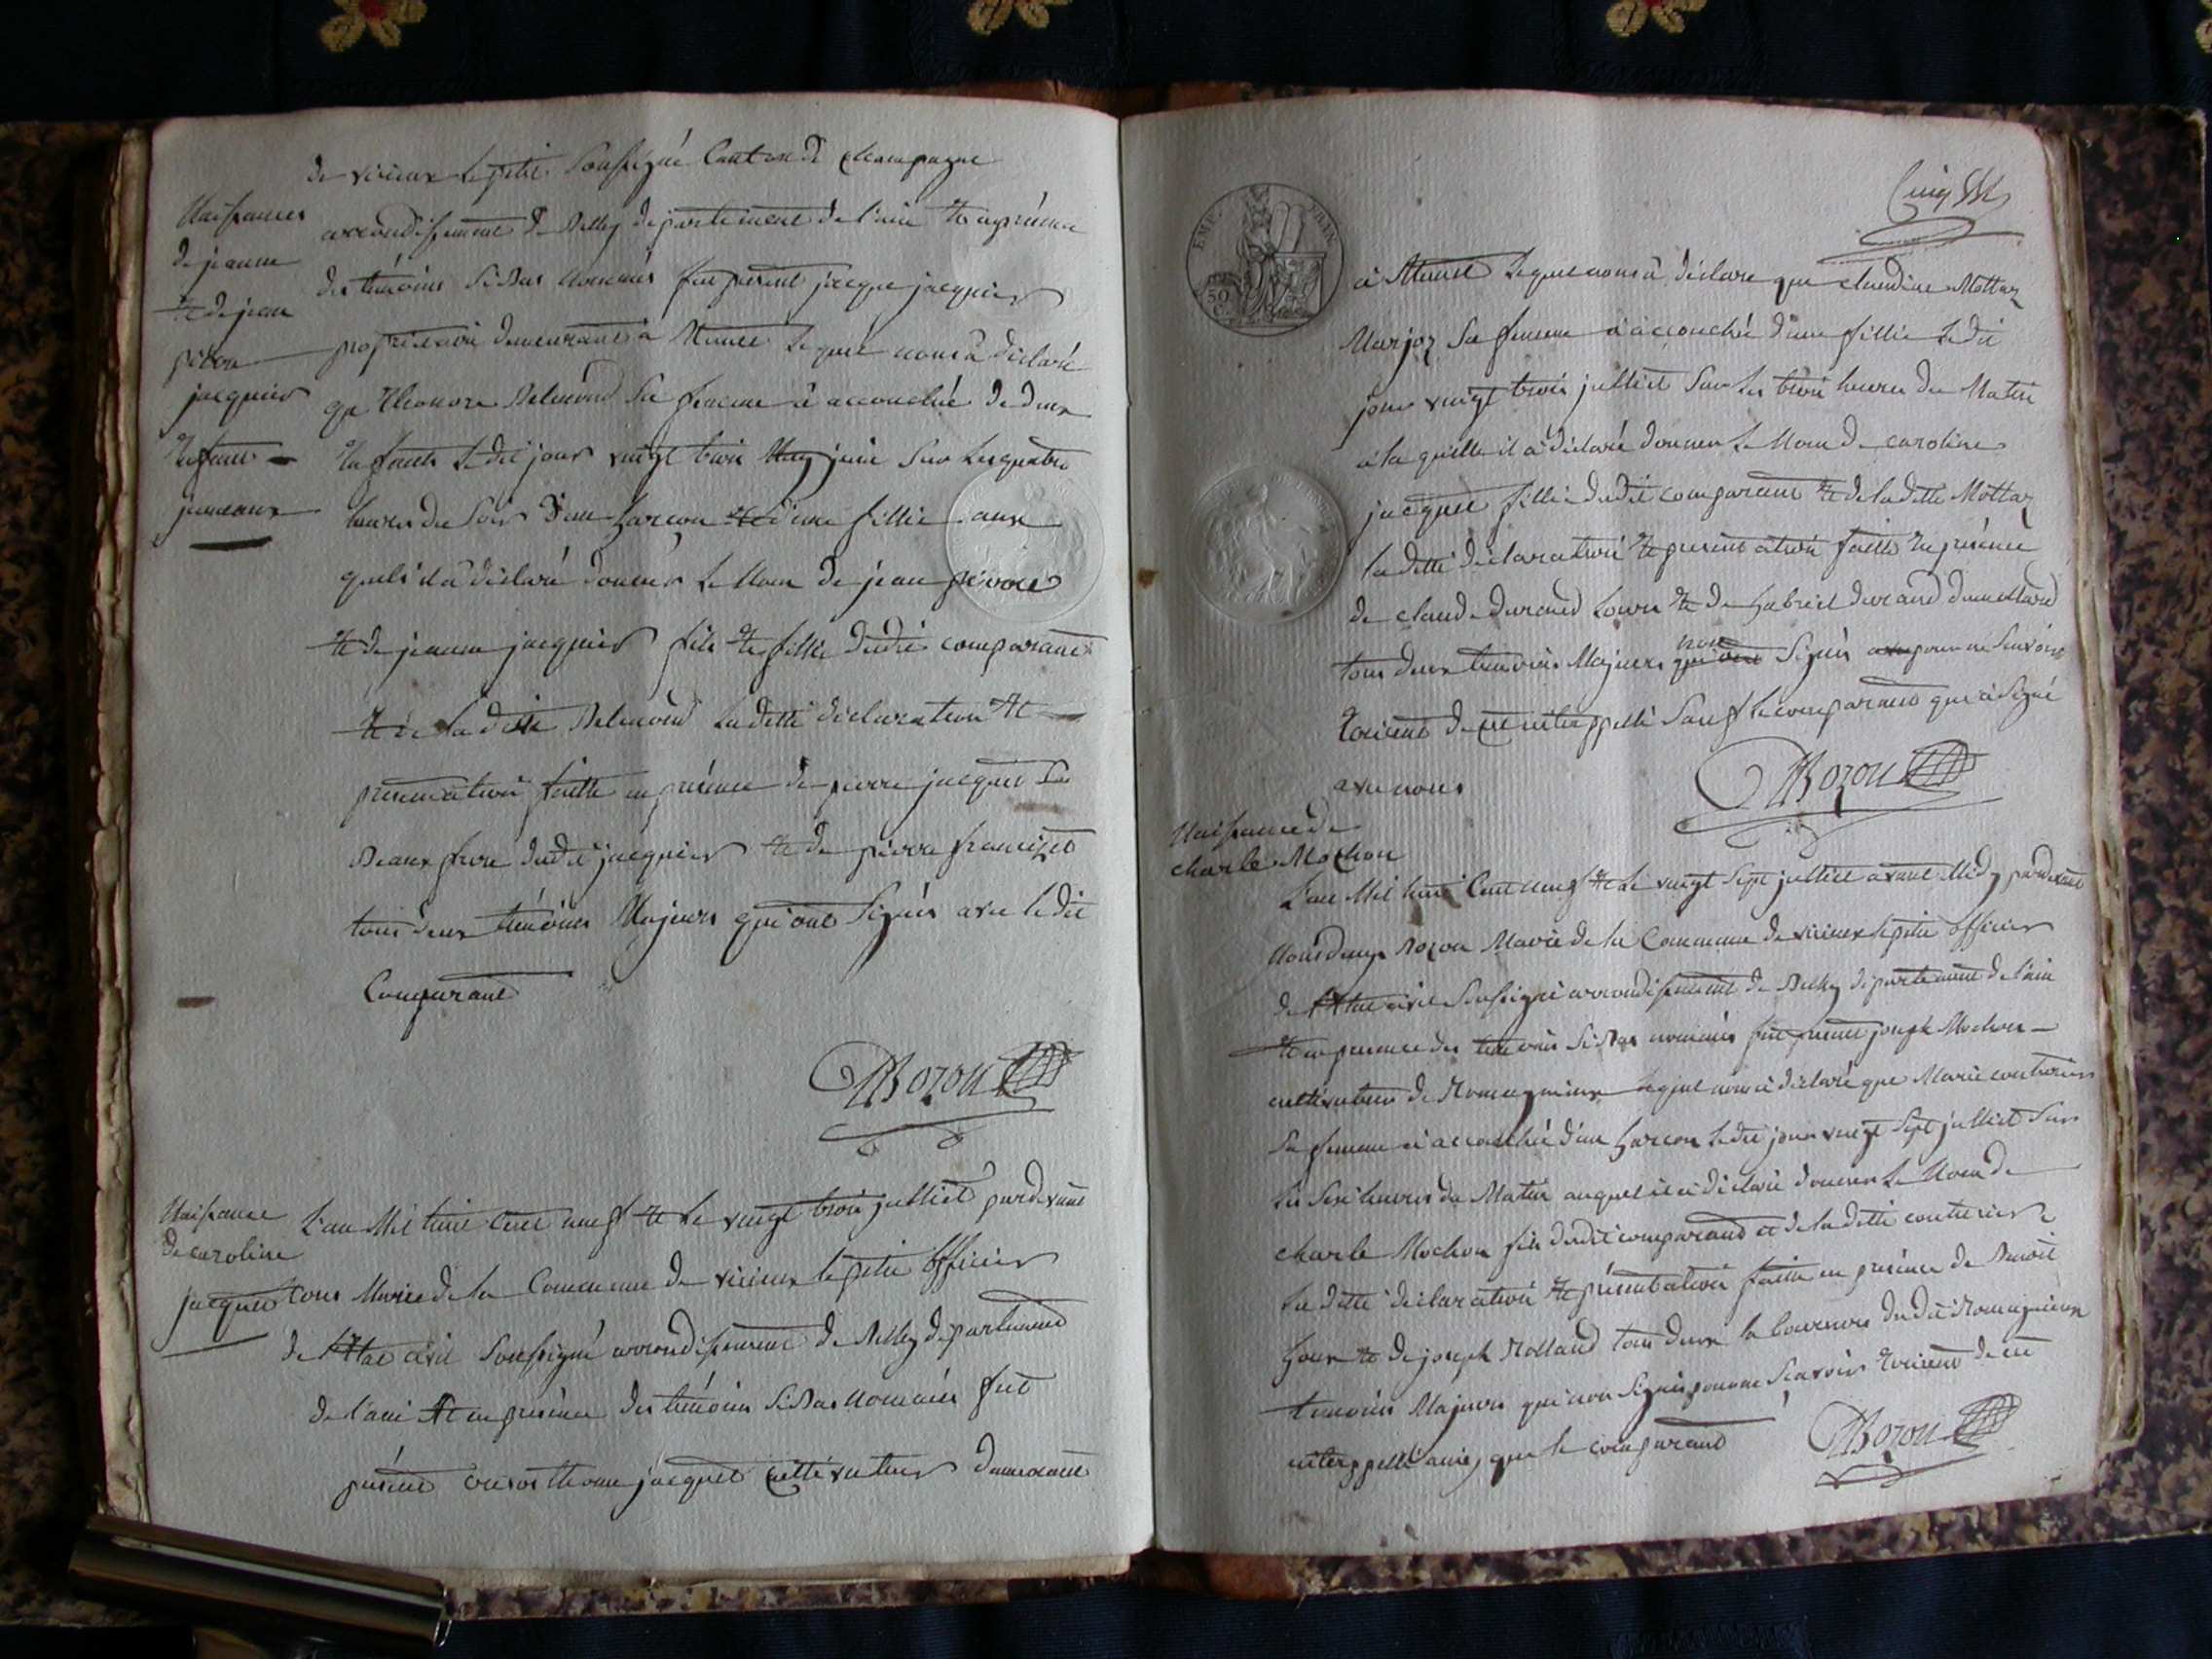 de virieux le petit soussigné Canton de Champagne
Naissances
de jeanne
et de jean
pierre
jacquier
Enfants
jumeaux
arrondissement de Belley departement de l'ain et en présence
des témoins si bas nommés fut present jacque jacquier
propriétaire demeurant à Munet lequel nous à déclaré
que Eleonore Belmond sa femme à accouchée de deux
Enfants le dit jour vingt trois juin sur les quatre
heures du soir d'un garcon et d'une fillie aux
quels il à déclaré donner le Nom de jean pierre
et de jeanne jacquier fils et fillie dudit comparant
et de la ditte Belmond la ditte déclaration et
présentation faitte en présence de pierre jacquier
Beaux frere dudit jacquier et de pierre
tous deux témoins Majeurs qui ont signés avec le dit
Comparant
Bozon
Naissance
de caroline
jacquet
L'an Mil huit Cent neuf et le vingt trois julliet pardevant
nous Maire de la Commune de virieux le petit officier
de l'Etat civil soussigné arrondissement de Belley departement
de l'ain et en présence des témoins si bas nommés fut
présent jacquet cultivateur demeurant
à Munet lequel nous à déclare que claudine Mottaz
EMP. FRAN.
50
C.
Marjoz sa femme à accouchée d'une fillie le dit
jour vingt trois julliet sur les trois heures du Matin
à la quelle il à déclaré donner le Nom de caroline
jacquet fillie dudit comparant et de la ditte Mottaz
la ditte déclaration et presentation faitte en présence
de claude durand et de Gabriel durand
tous deux temoins Majeurs non signés pour ne savoir
de ce interppellé sauf le comparant qui à signé
avec nous
Bozon
Naissance de
charle Mochon
L'an Mil huit Cent neuf et le vingt sept julliet avant Midy pardevant
Nous Bozon Maire de la Commune de virieux le petit officier
de l'Etat civil soussigné arrondissement de Belley département de l'ain
et en presence des temoins si bas nommés fut présent joseph Mochon
cultivateur de Romagnieux lequel nous à déclaré que Marie couturier
sa femme à accouchée d'un garcon le dit jour vingt sept julliet sur
les heures du Matin auquel il à déclaré donner le Nom de
charle Mochon fils dudit comparant et de la ditte couturier
la ditte déclaration et présentation faitte en présence de Benoit
et de joseph Rolland tous deux laboureurs dudit Romagnieux
témoins Majeurs qui non signés pour ne scavoir de ce
interppellé ainsy que le comparant
Bozon